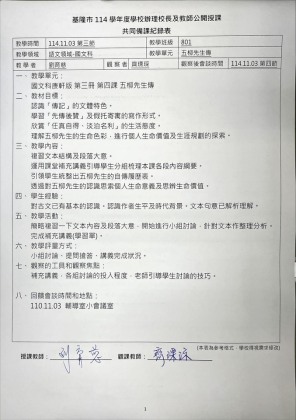 基隆市 114 學年度學校辦理校長及教師公開授課
共同備課紀錄表
教學時間 114.11.03 第三節 教學班級 801
教學領域 語文領域-國文科 教學單元 五柳先生傳
教學者 觀察者 觀察後會談時間 114.11.03 第四節
一、教學單元：
國文科康軒版 第三冊 第四課 五柳先生傳
二、教材目標：
認識「傳記」的文體特色。
學習「先傳後贊」及假托寄寓的寫作形式。
欣賞「任真自得、淡泊名利」的生活態度。
理解五柳先生的生命色彩，進行個人生命價值及生涯規劃的探索。
三、教學內容：
複習文本結構及段落大意。
運用課堂補充講義引導學生分組梳理本課各段內容綱要。
引領學生統整出五柳先生的自傳履歷表。
透過對五柳先生的認識思索個人生命意義及思辨生命價值。
四、學生經驗：
對古文已有基本的認識。認識作者生平及時代背景。文本句意已解析理解。
五、教學活動：
簡略複習一下文本內容及段落大意，開始進行小組討論，針對文本作整理分析。
完成補充講義(學習單)。
六、教學評量方式：
小組討論、提問搶答、講義完成狀況。
七、觀察的工具和觀察焦點：
補充講義，各組討論的投入程度，老師引導學生討論的技巧。
八、回饋會談時間和地點：
110.11.03 輔導室小會議室
(本表為參考格式，學校得視需求修改)
授課教師： 觀課教師：
1